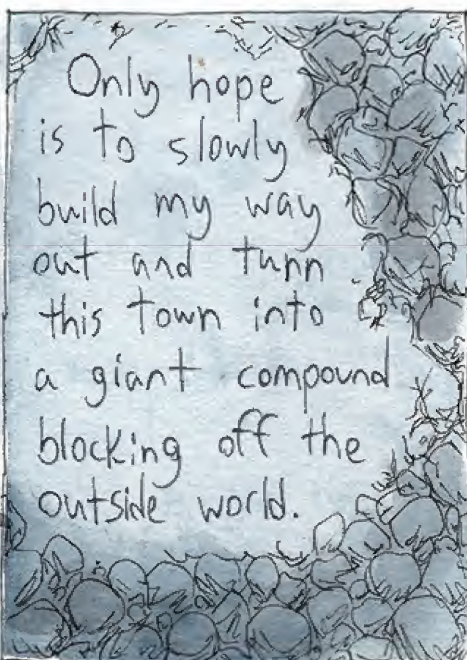 Only hope
is to slowly
build my way
out and turn
this town into
a giant compound
blocking off the
outside world.